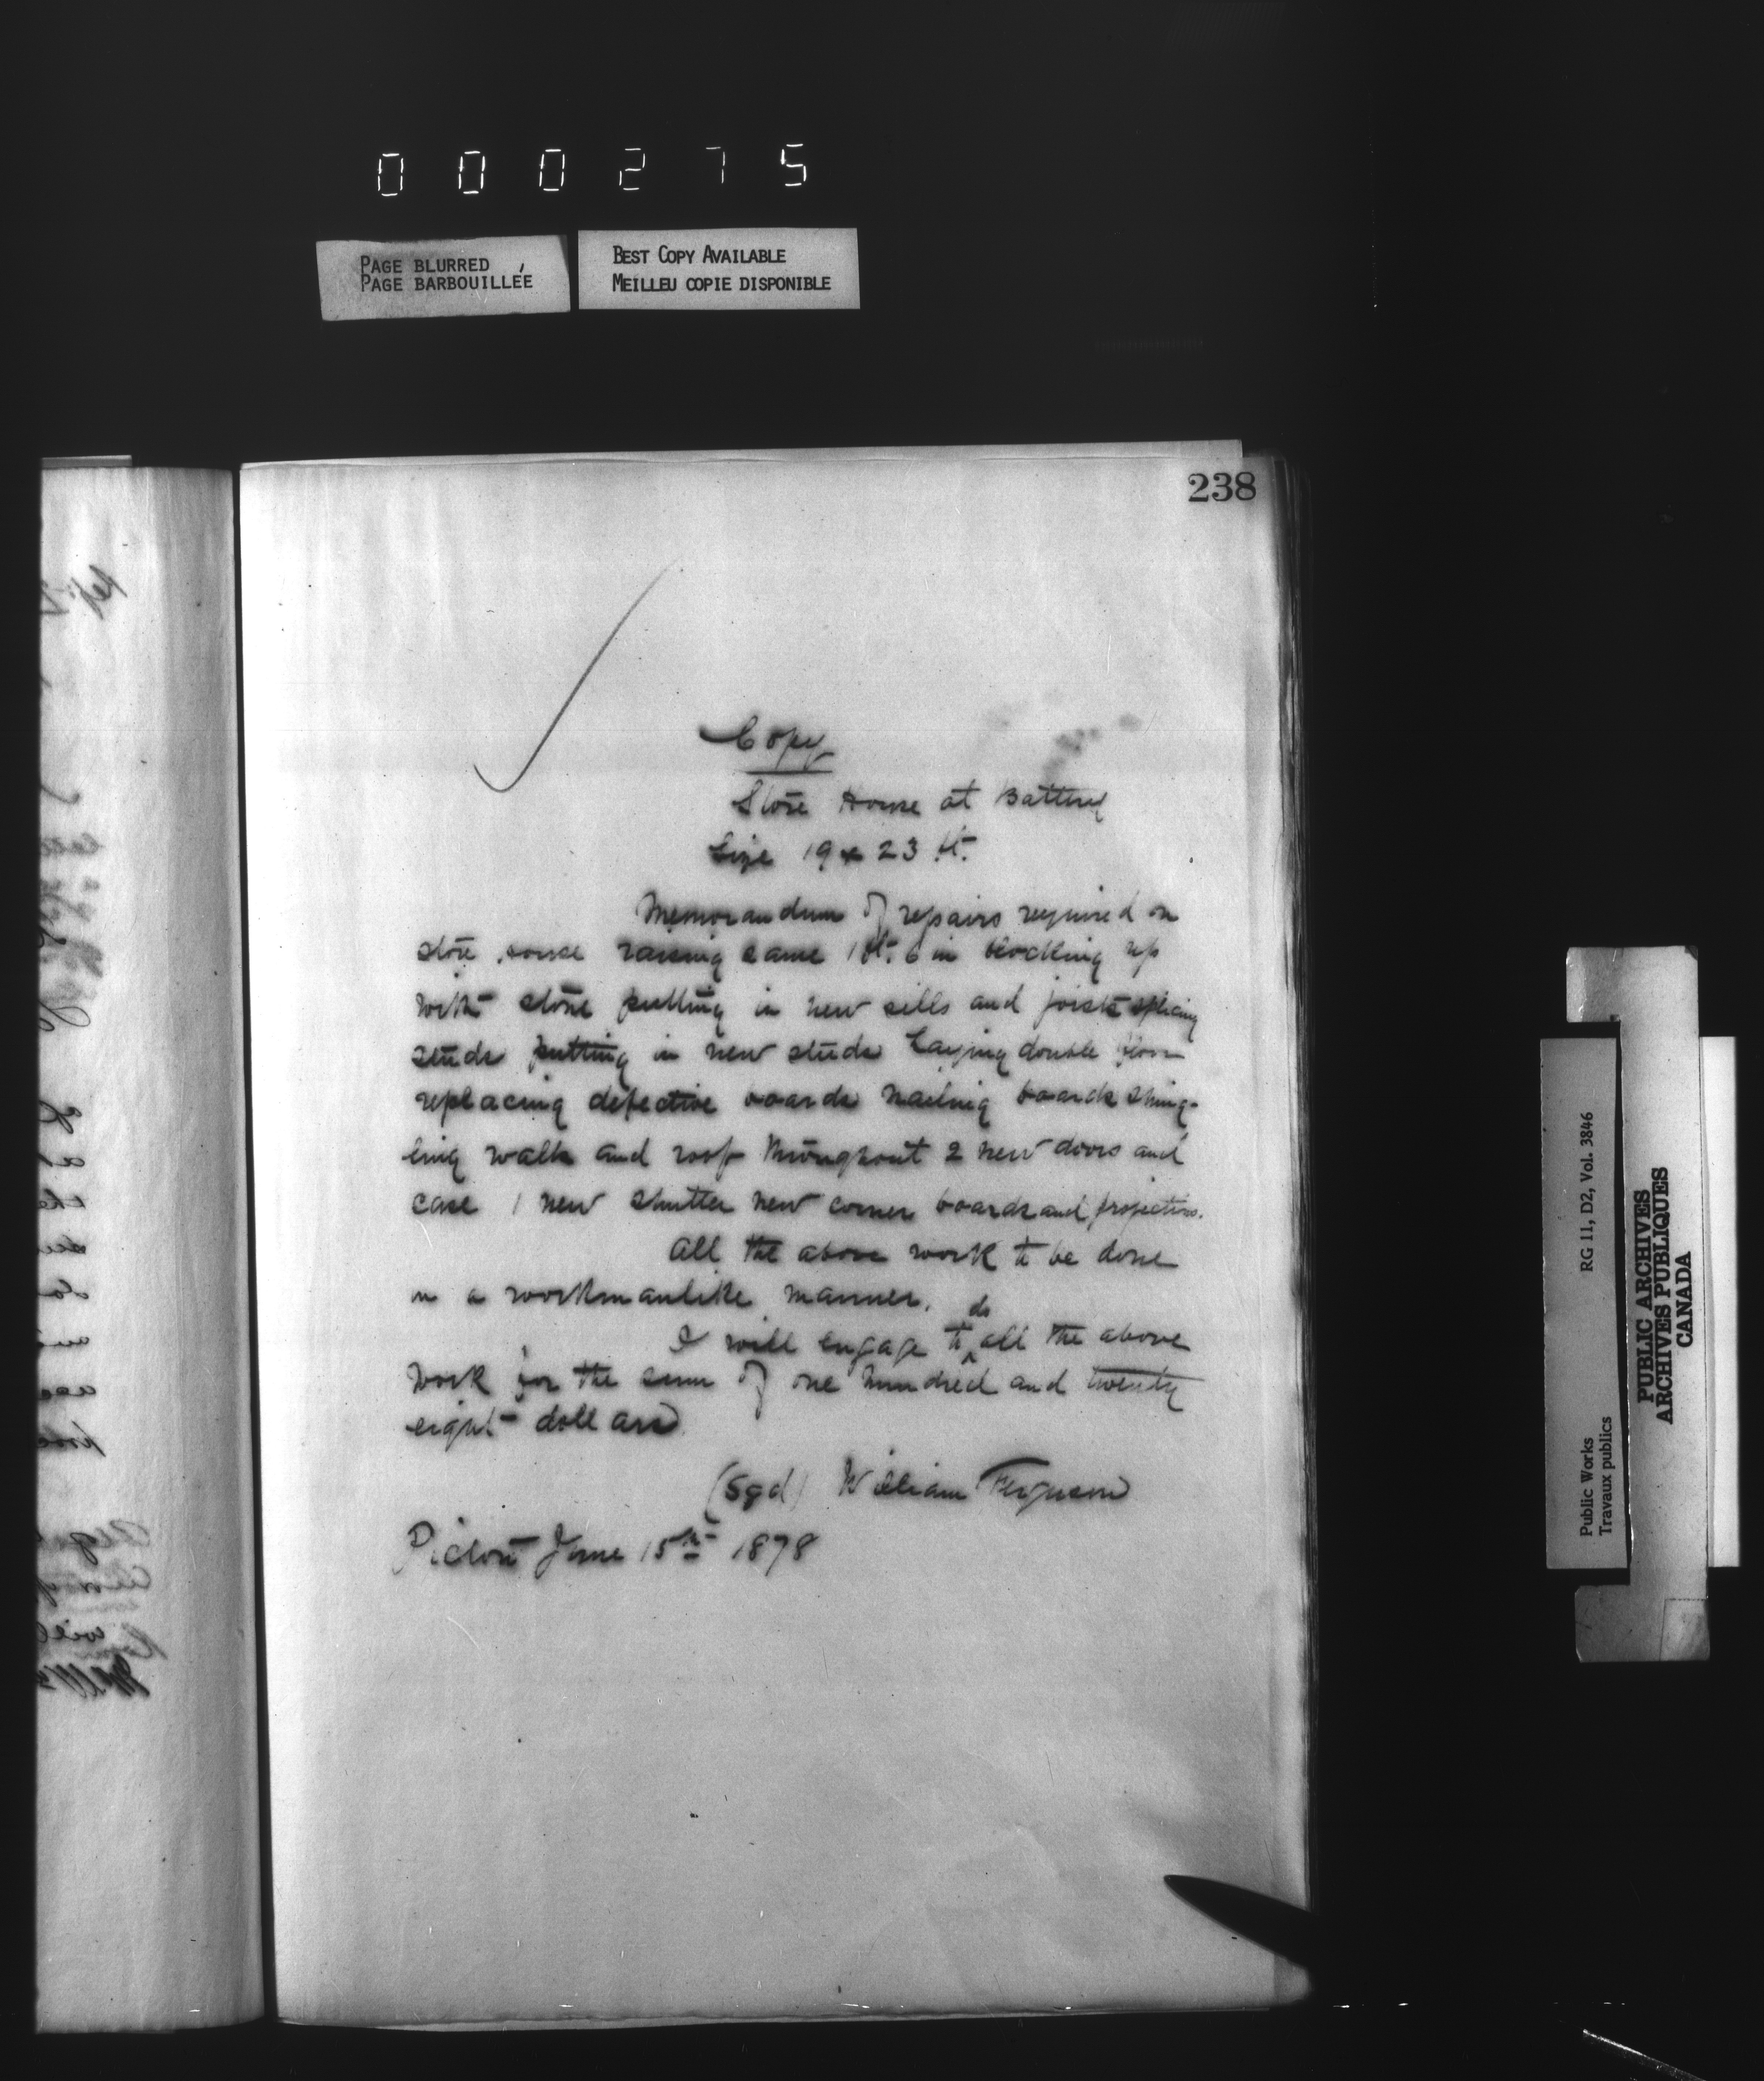 000275
PAGE BLURRED
PAGE BARBOUILLÉE
BEST COPY AVAILABLE
MEILLEU COPIE DISPONIBLE
238
Copy
Store House at Battery
Size 19 x 23 ft.
Memorandum of repairs required on
store house raising same 1 ft. 6 in blocking up
with stone putting in new sills and joists splicing
studs putting in new studs Laying double floor
replacing defective boards nailing boards shing-
ling walls and roof throughout 2 new doors and
case 1 new shutter new corner boards and projections.
All the above work to be done
in a workmanlike manner.
I will engage to do all the above
work for the sum of one hundred and twenty
eight dollars
(Sgd) William Ferguson
Pictou June 15th 1878
Public Works
Travaux publics
RG 11, D2, Vol. 3846
PUBLIC ARCHIVES
ARCHIVES PUBLIQUES
CANADA